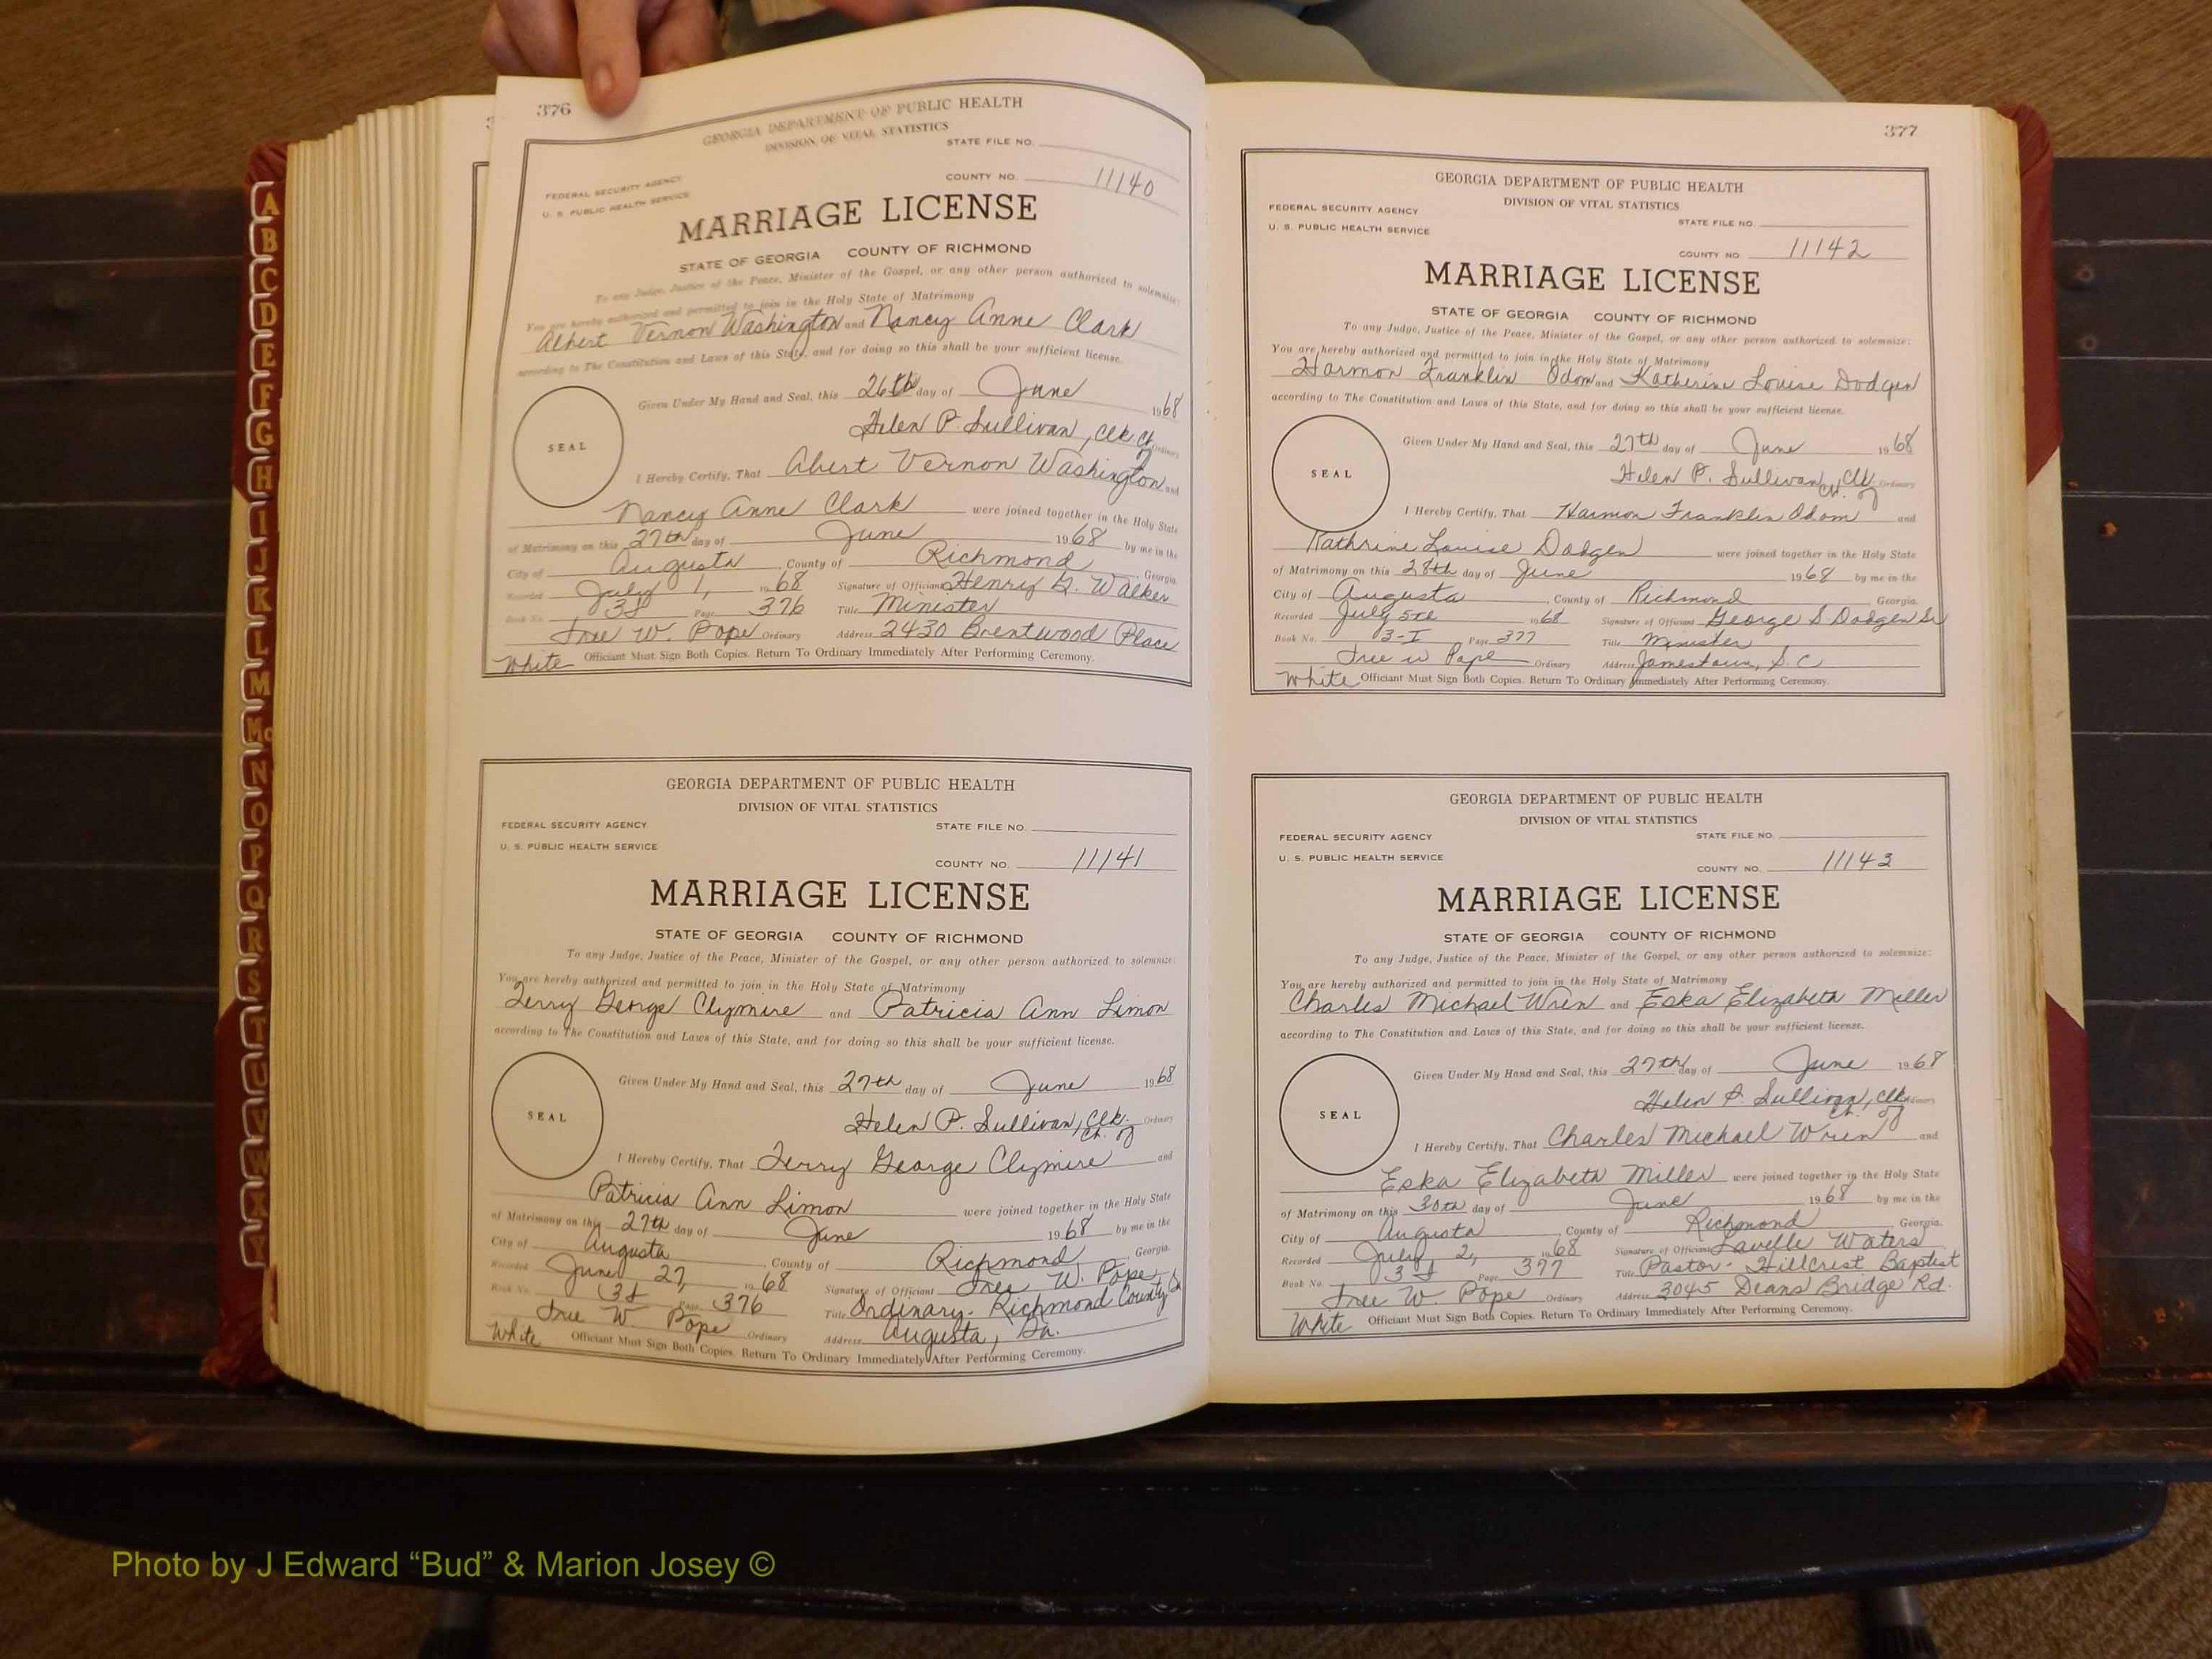 376
GEORGIA DEPARTMENT OF PUBLIC HEALTH
DIVISION OF VITAL STATISTICS
STATE FILE NO.
FEDERAL SECURITY AGENCY
U. S. PUBLIC HEALTH SERVICE
COUNTY NO. 11140
MARRIAGE LICENSE
STATE OF GEORGIA COUNTY OF RICHMOND
To any Judge, Justice of the Peace, Minister of the Gospel, or any other person authorized to solemnize:
You are hereby authorized and permitted to join in the Holy State of Matrimony
Albert Vernon Washington and Nancy Anne Clark
according to The Constitution and Laws of this State, and for doing so this shall be your sufficient license.
Given Under My Hand and Seal, this 26th day of June 1968
SEAL
Helen P. Sullivan, Clk. Ct. Ordinary
I Hereby Certify, That Abert Vernon Washington and
Nancy Anne Clark were joined together in the Holy State
of Matrimony on this 27th day of June 1968 by me in the
City of Augusta, County of Richmond, Georgia.
Recorded July 1, 1968 Signature of Official Henry G. Walker
Book No. 3I Page 376 Title Minister
Tree W. Pope Ordinary Address 2430 Brentwood Place
White Officiant Must Sign Both Copies. Return To Ordinary Immediately After Performing Ceremony.
GEORGIA DEPARTMENT OF PUBLIC HEALTH
DIVISION OF VITAL STATISTICS
FEDERAL SECURITY AGENCY STATE FILE NO.
U. S. PUBLIC HEALTH SERVICE
COUNTY NO. 11141
MARRIAGE LICENSE
STATE OF GEORGIA COUNTY OF RICHMOND
To any Judge, Justice of the Peace, Minister of the Gospel, or any other person authorized to solemnize:
You are hereby authorized and permitted to join in the Holy State of Matrimony
Jerry George Clymire and Patricia Ann Limon
according to The Constitution and Laws of this State, and for doing so this shall be your sufficient license.
Given Under My Hand and Seal, this 27th day of June 1968
SEAL
Helen P. Sullivan, Clk. Ct. of Ordinary
I Hereby Certify, That Jerry George Clymire and
Patricia Ann Limon were joined together in the Holy State
of Matrimony on this 27th day of June 1968 by me in the
City of Augusta, County of Richmond, Georgia.
Recorded June 27, 1968 Signature of Officiant Tree W. Pope
Book No. 3I Page 376 Title Ordinary- Richmond County, Ga
Tree W. Pope Ordinary Address Augusta, Ga.
White Officiant Must Sign Both Copies. Return To Ordinary Immediately After Performing Ceremony.
377
GEORGIA DEPARTMENT OF PUBLIC HEALTH
DIVISION OF VITAL STATISTICS
FEDERAL SECURITY AGENCY
STATE FILE NO.
U. S. PUBLIC HEALTH SERVICE
COUNTY NO. 11142
MARRIAGE LICENSE
STATE OF GEORGIA COUNTY OF RICHMOND
To any Judge, Justice of the Peace, Minister of the Gospel, or any other person authorized to solemnize:
You are hereby authorized and permitted to join in the Holy State of Matrimony
Harmon Franklin Odom and Katherine Louise Dodgen
according to The Constitution and Laws of this State, and for doing so this shall be your sufficient license.
Given Under My Hand and Seal, this 27th day of June 1968
SEAL
Helen P. Sullivan, Clk. Ct. of Ordinary
I Hereby Certify, That Harmon Franklin Odom and
Kathrine Louise Dodgen were joined together in the Holy State
of Matrimony on this 28th day of June 1968 by me in the
City of Augusta, County of Richmond, Georgia.
Recorded July 5th 1968 Signature of Official George S. Dodgen Sr
Book No. 3-I Page 377 Title Minister
Tree W Pope Ordinary Address Jamestown, S.C
White Officiant Must Sign Both Copies. Return To Ordinary Immediately After Performing Ceremony.
GEORGIA DEPARTMENT OF PUBLIC HEALTH
DIVISION OF VITAL STATISTICS
FEDERAL SECURITY AGENCY STATE FILE NO.
U. S. PUBLIC HEALTH SERVICE
COUNTY NO. 11143
MARRIAGE LICENSE
STATE OF GEORGIA COUNTY OF RICHMOND
To any Judge, Justice of the Peace, Minister of the Gospel, or any other person authorized to solemnize:
You are hereby authorized and permitted to join in the Holy State of Matrimony
Charles Michael Wren and Eska Elizabeth Miller
according to The Constitution and Laws of this State, and for doing so this shall be your sufficient license.
Given Under My Hand and Seal, this 27th day of June 1968
SEAL
Helen P. Sullivan, Clk. Ct. of Ordinary
I Hereby Certify, That Charles Michael Wren and
Eska Elizabeth Miller were joined together in the Holy State
of Matrimony on this 30th day of June 1968 by me in the
City of Augusta, County of Richmond, Georgia.
Recorded July 2, 1968 Signature of Official Lavelle Waters
Book No. 3I Page 377 Title Pastor- Hillcrest Baptist
Tree W. Pope Ordinary Address 3045 Deans Bridge Rd.
White Officiant Must Sign Both Copies. Return To Ordinary Immediately After Performing Ceremony.
A
B
C
D
E
F
G
H
I
J
K
L
M
Mc
N
O
P
Q
R
S
T
U
V
W
X
Y
Photo by J Edward “Bud” & Marion Josey ©